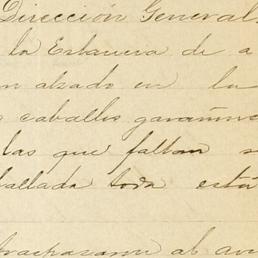 Dirección General
la Estancia de a
n alzado en la
caballos garañones
las que faltan s
ballada toda está
traspasaron al avi